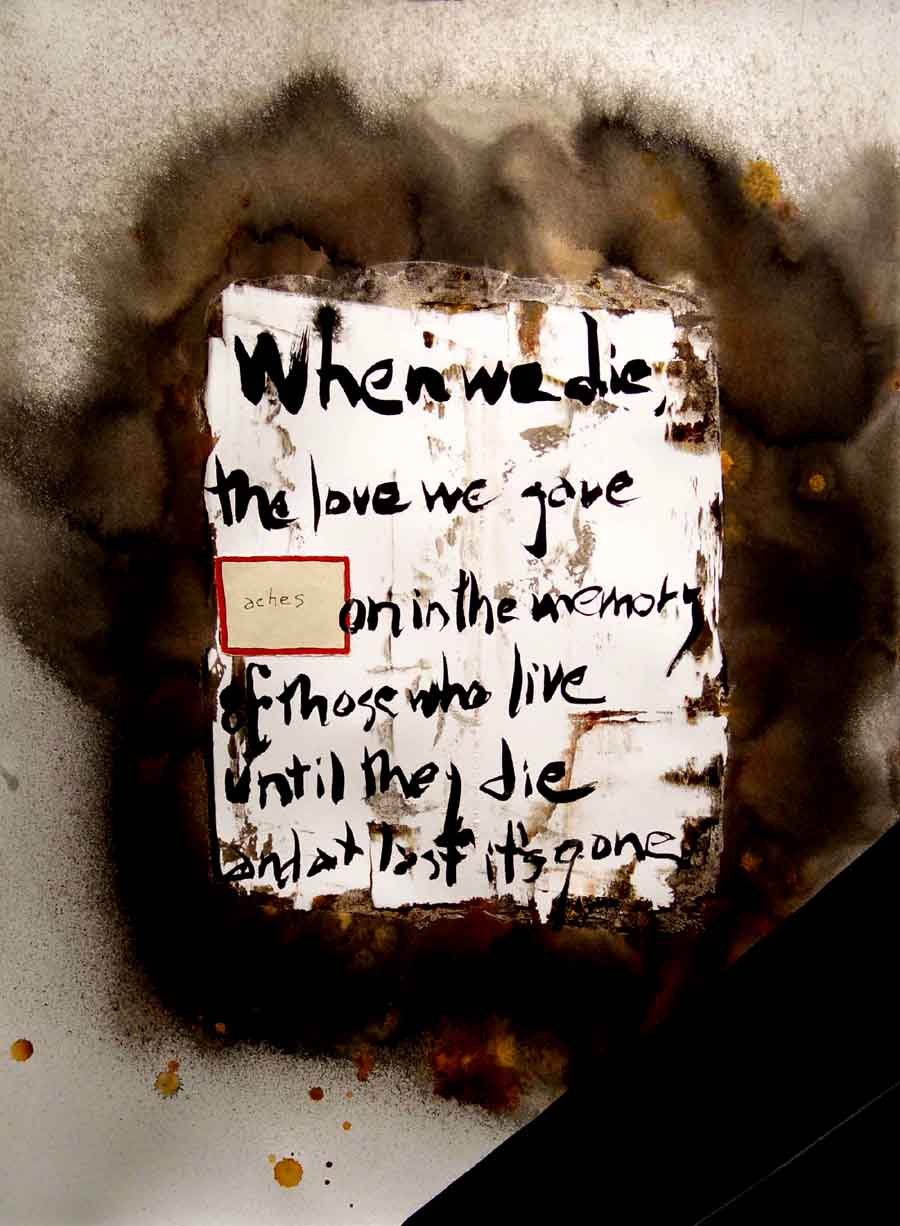 When we die,
the love we gave
aches on in the memory
of those who live
until they die
and at last it's gone